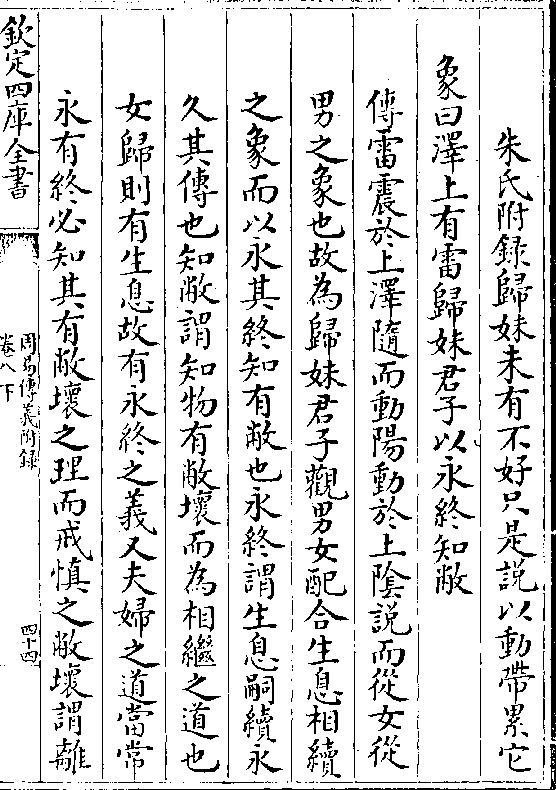 朱氏附録歸妹未有不好只是説以動帶累它
象曰澤上有雷歸妹君子以永終知敝
傳雷震於上澤隨而動陽動於上陰説而從女從
男之象也故為歸妹君子觀男女配合生息相續
之象而以永其終知有敝也永終謂生息嗣續永
久其傳也知敝謂知物有敝壞而為相繼之道也
女歸則有生息故有永終之義又夫婦之道當常
永有終必知其有敝壞之理而戒慎之敝壞謂離
欽定四庫全書
周易傳義附録
卷八下
四十四